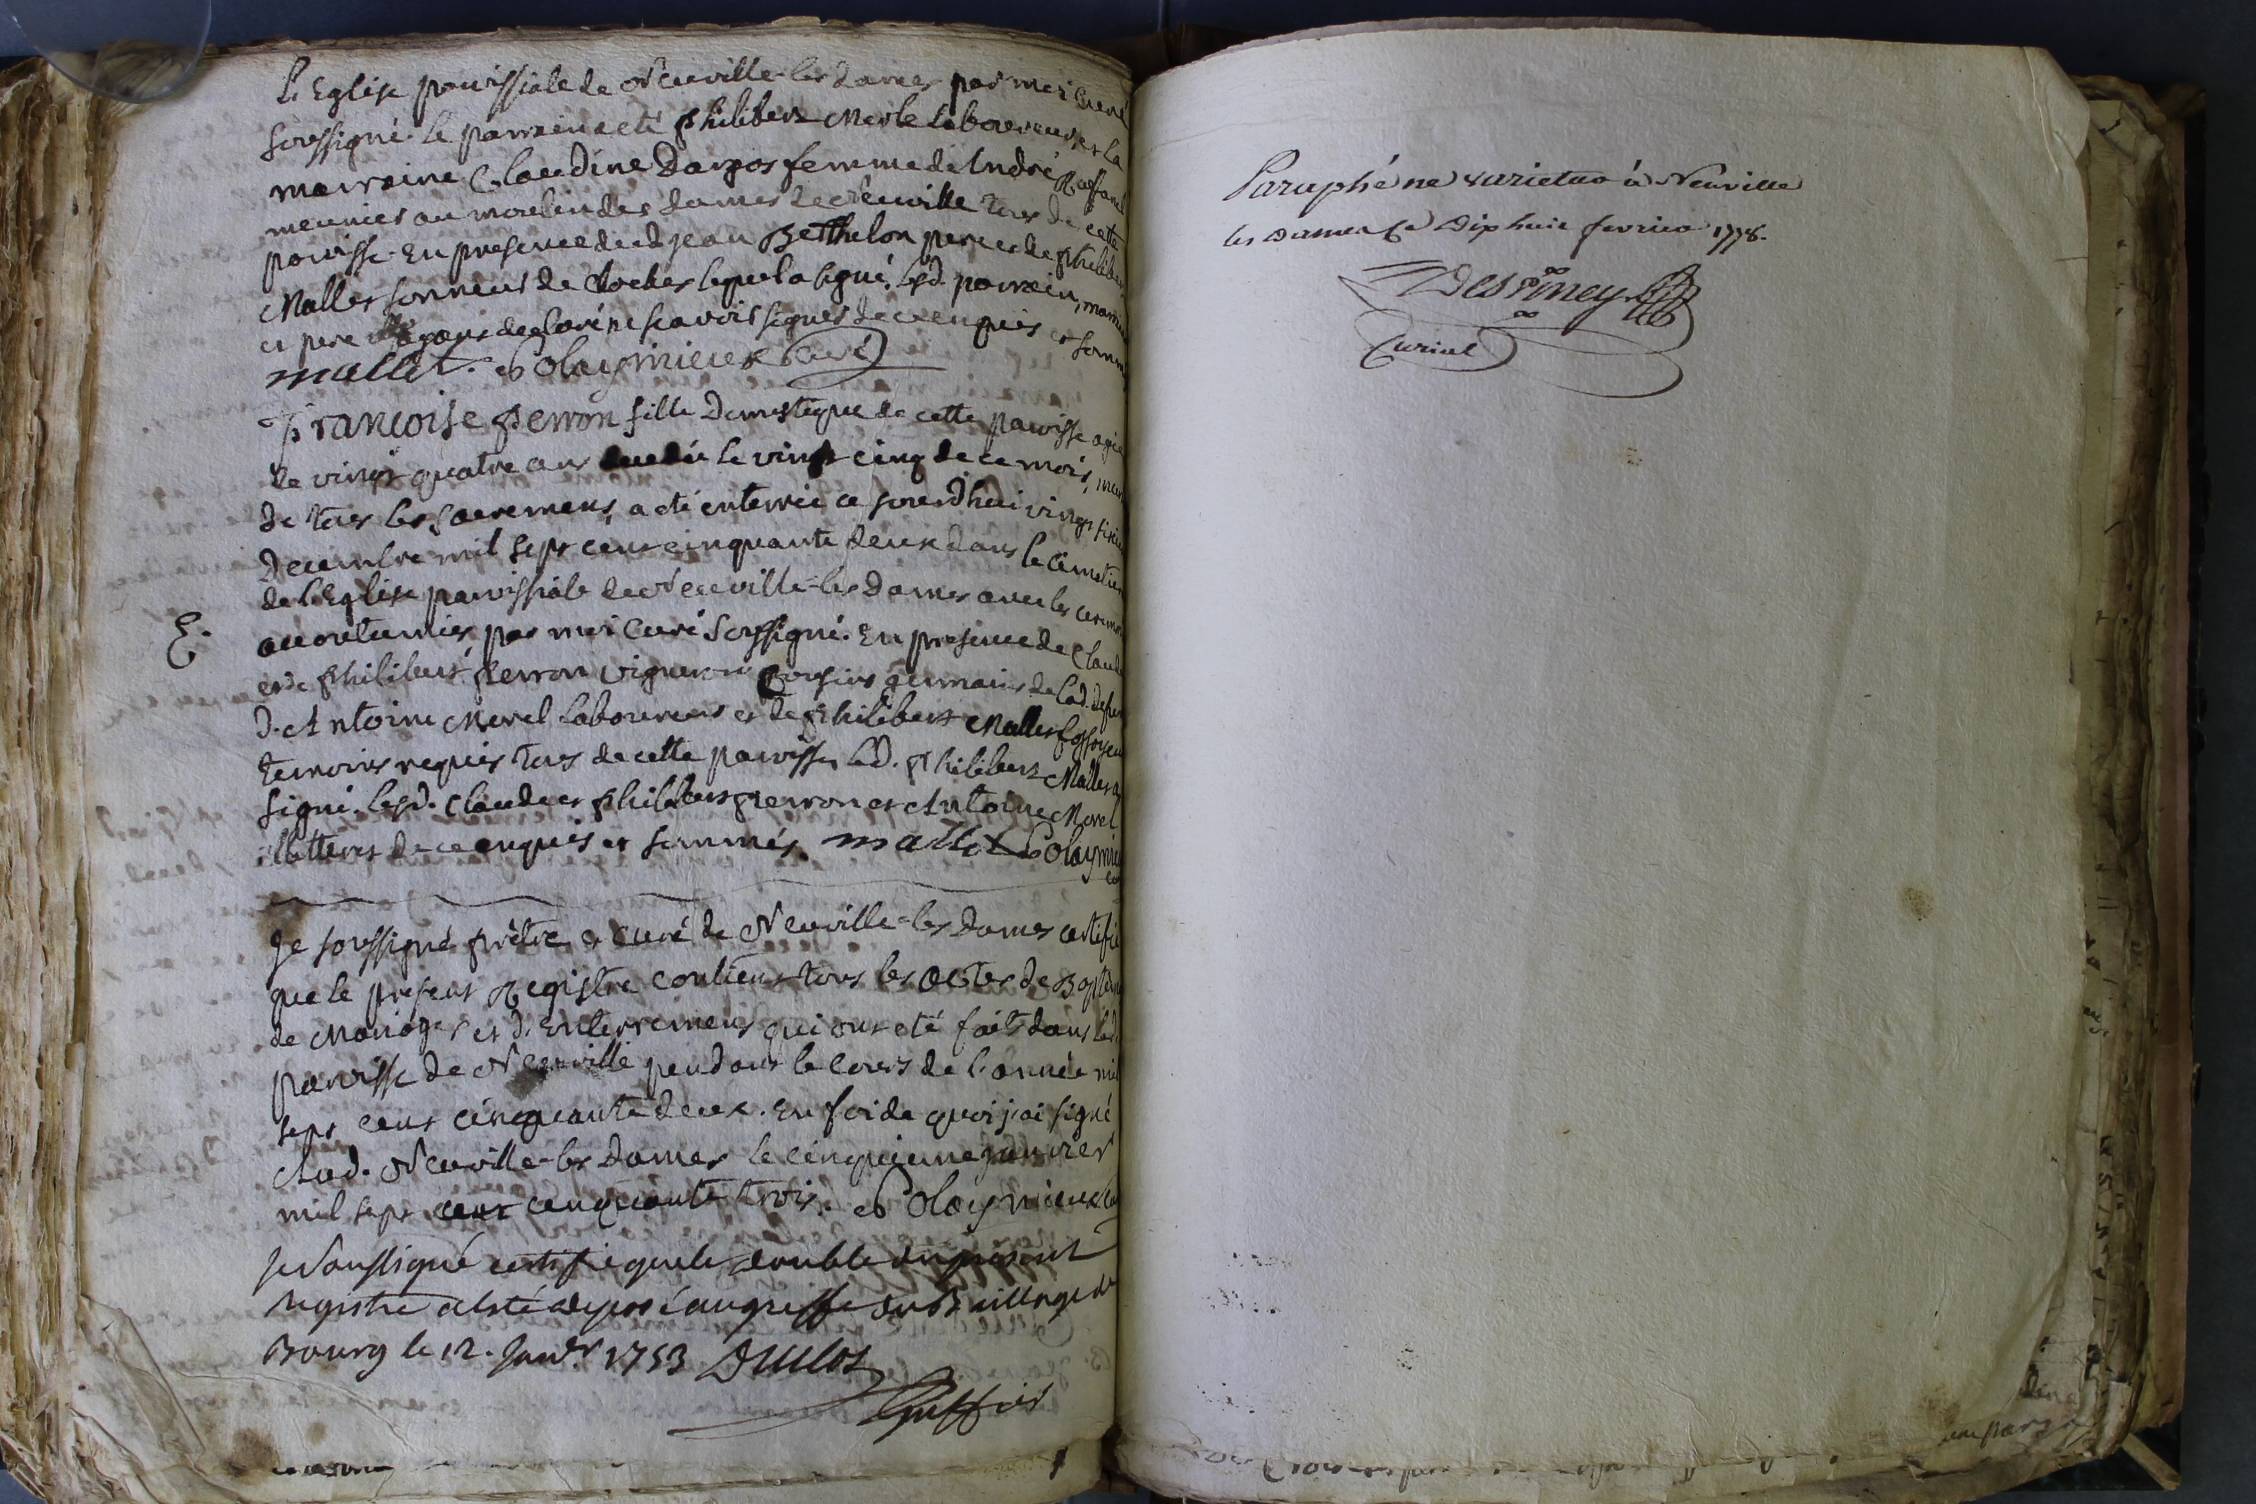 L'Eglise paroissiale de Neuville-les Dames par moi Curé
soussigné. le parrain a eté Philibert Merle laboureur, et la
marraine Claudine Dagos femme de André Raffanel
meunier au moulin des Dames de Neuville tous de cette
paroisse. En presence dud. jean Berthelon pere et de Philibert
Mallet sonneur de cloches lequel a signé, lesd. parrain, marraine
et pere ayant declaré ne scavoir signer de ce enquis et sommés
mallet. Polaymieux Curé
Françoise Perron fille Domestique de cette paroisse agée
de vingt quatre ans decedée le vingt cinq de ce mois, munie
de tous les sacremens, a eté enterrée ce jourdhui vingt sixieme
Decembre mil sept cent cinquante deux dans le cimetiere
de l'Eglise paroissiale de Neuville-les Dames avec les ceremonies
E. accoutumées par moi Curé soussigné. En presence de Claude
et de Philibert Perron vignerons cousins germains de lad. defunte
d'Antoine Morel laboureur et de Philibert Mallet fossoyeur
temoins requis tous de cette paroisse, led. Philibert Mallet a
signé, lesd. Claude et Philibert Perron et Antoine Morel
illetteres de ce enquis et sommés. mallet Polaymieux
Je soussigné prêtre et curé de Neuville-les Dames certifie
que le present Registre contient tous les actes de Baptême
de Mariages et d'Enterremens qui ont eté faits dans lad.
paroisse de Neuville pendant le cours de l'année mil
sept cent cinquante deux. En foi de quoi j'ai signé
Aud. Neuville-les Dames le cinquieme janvier
mil sept cent cinquante trois. Polaymieux
Je soussigné certifie que le double du present
registre a esté deposé au greffe du Bailliage de
Bourg le 12. Janvr 1753 Duclos
Greffier
Paraphé ne varietur à Neuville
les Dames ce Dix huit fevrier 1778.
Despiney
Curial